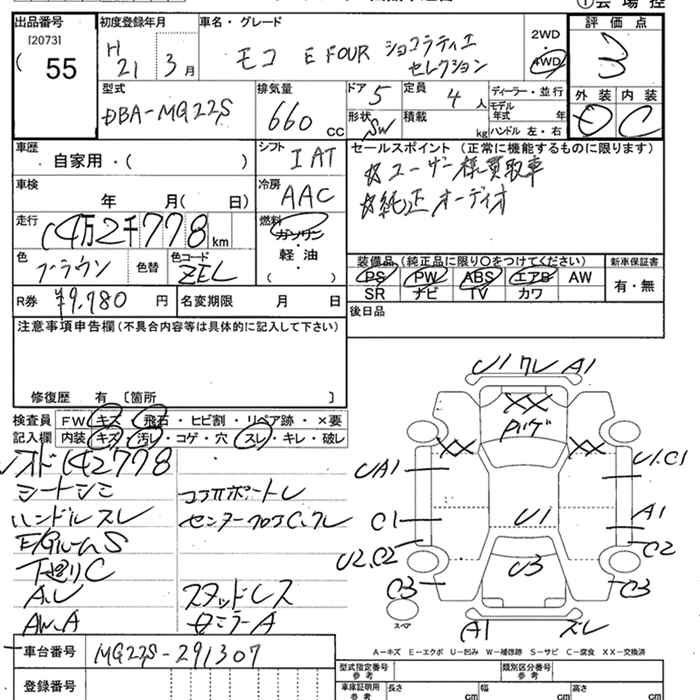 ① 会場控
出品番号
[2073]
55
初度登録年月
H 21年 3月
車名・グレード
モコ E FOUR ショコラティエ セレクション
2WD
4WD
評価点
3
外装 内装
D C
型式
DBA-MG22S
排気量
660 cc
ドア 5
定員 4 人
形状 SW
積載 kg
ディーラー・並行
モデル年式 年
ハンドル 左・右
車歴
自家用・( )
シフト
IAT
セールスポイント (正常に機能するものに限ります)
☆ユーザー様買取車
☆純正オーディオ
車検
年 月( 日)
冷房
AAC
走行
14万2千778 km
燃料
ガソリン
・
軽油
( )
色
ブラウン
色替
色コード
ZEL
R券 ¥9,780 円
名変期限 月 日
装備品 (純正品に限り○をつけてください)
PS PW ABS エアB AW
SR ナビ TV カワ
新車保証書
有・無
後日品
注意事項申告欄(不具合内容等は具体的に記入して下さい)
修復歴 有 [箇所 ]
検査員記入欄
FW キズ・飛石・ヒビ割・リペア跡・×要
内装 キズ・汚レ・コゲ・穴・スレ・キレ・破レ
142778
シートシミ
ハンドルスレ
E/GルームS
下廻りC
A.U
AW.A
スタッドレス
ミラーA
U1 ワレ A1
XX
XX
XX
UA1
C1
U2.C2
C3
U1
U3
U1.C1
A1
C2
C3
A1
スレ
スペア
A-キズ E-エクボ U-凹み W-補修跡 S-サビ C-腐食 XX-交換済
車台番号
MG22S-291307
登録番号
型式指定番号 参考
類別区分番号 参考
車庫証明用 参考
長さ cm
幅 cm
高さ cm